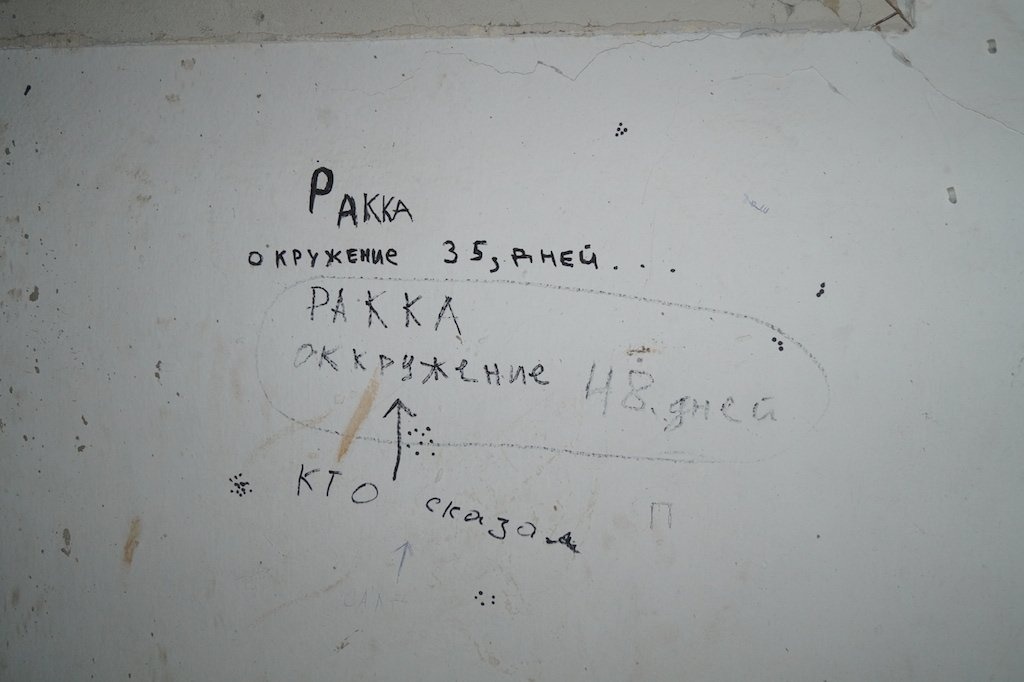 РАККА
окружение 35, дней....
РАККА
оккружение 48. дней
кто сказал
П